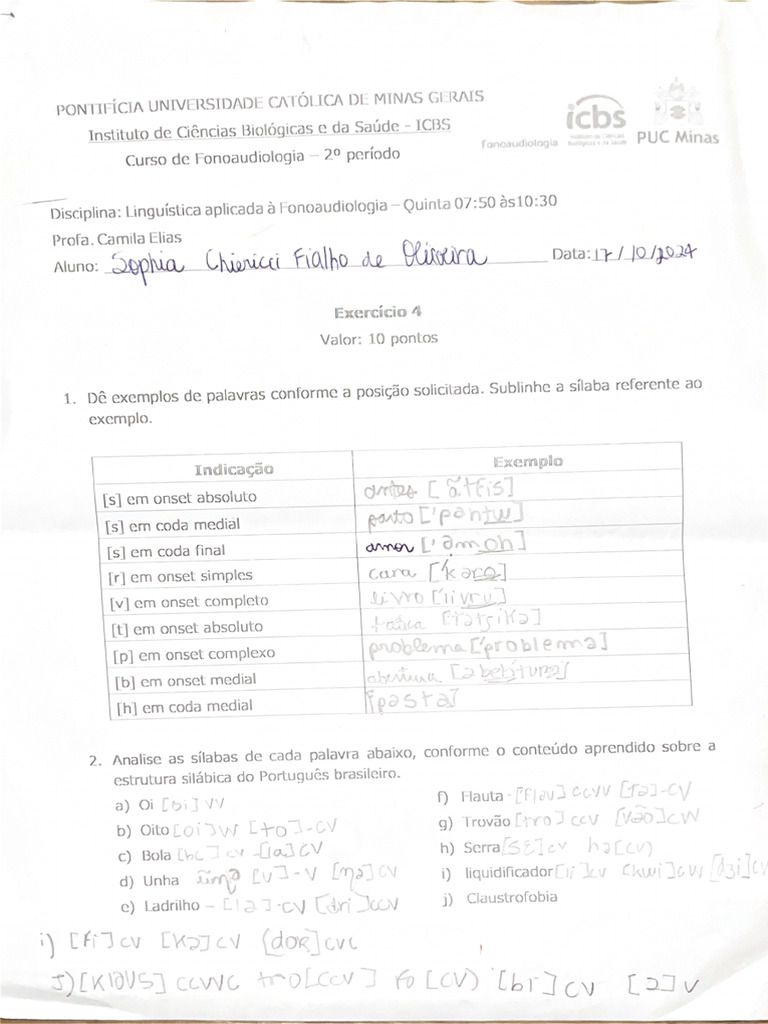 PONTIFÍCIA UNIVERSIDADE CATÓLICA DE MINAS GERAIS
Instituto de Ciências Biológicas e da Saúde - ICBS
Curso de Fonoaudiologia – 2º período
Fonoaudiologia
icbs
Instituto de Ciências
Biológicas e da Saúde
PUC Minas
Disciplina: Linguística aplicada à Fonoaudiologia – Quinta 07:50 às10:30
Profa. Camila Elias
Aluno: Sophia Chiericci Fialho de Oliveira Data: 17/10/2024
Exercício 4
Valor: 10 pontos
1. Dê exemplos de palavras conforme a posição solicitada. Sublinhe a sílaba referente ao
exemplo.
Indicação Exemplo
[s] em onset absoluto antes [ãtʃis]
[s] em coda medial ['pɔhtu]
[s] em coda final amor ['amoh]
[r] em onset simples cara ['kaɾa]
[v] em onset completo livro ['livru]
[t] em onset absoluto
[p] em onset complexo problema ['problema]
[b] em onset medial abertura
[h] em coda medial [pasta]
2. Analise as sílabas de cada palavra abaixo, conforme o conteúdo aprendido sobre a
estrutura silábica do Português brasileiro.
a) Oi [oi] VV
b) Oito [oi] VV [to]-CV
c) Bola CV [la] CV
d) Unha - V [ɲa] CV
e) Ladrilho – [la]-CV [dri] CCV
f) Flauta - [flau] CCVV [ta]-CV
g) Trovão [tro] CCV [vão] CVV
h) Serra [sɛ] CV ha (CV)
i) liquidificador [li] CV [kwi] CVV [dʒi] CV
j) Claustrofobia
i) [fi] CV [ka] CV [dor] CVC
J) [klaus] CCVVC tro [CCV] fo [CV) [bi] CV [a] V